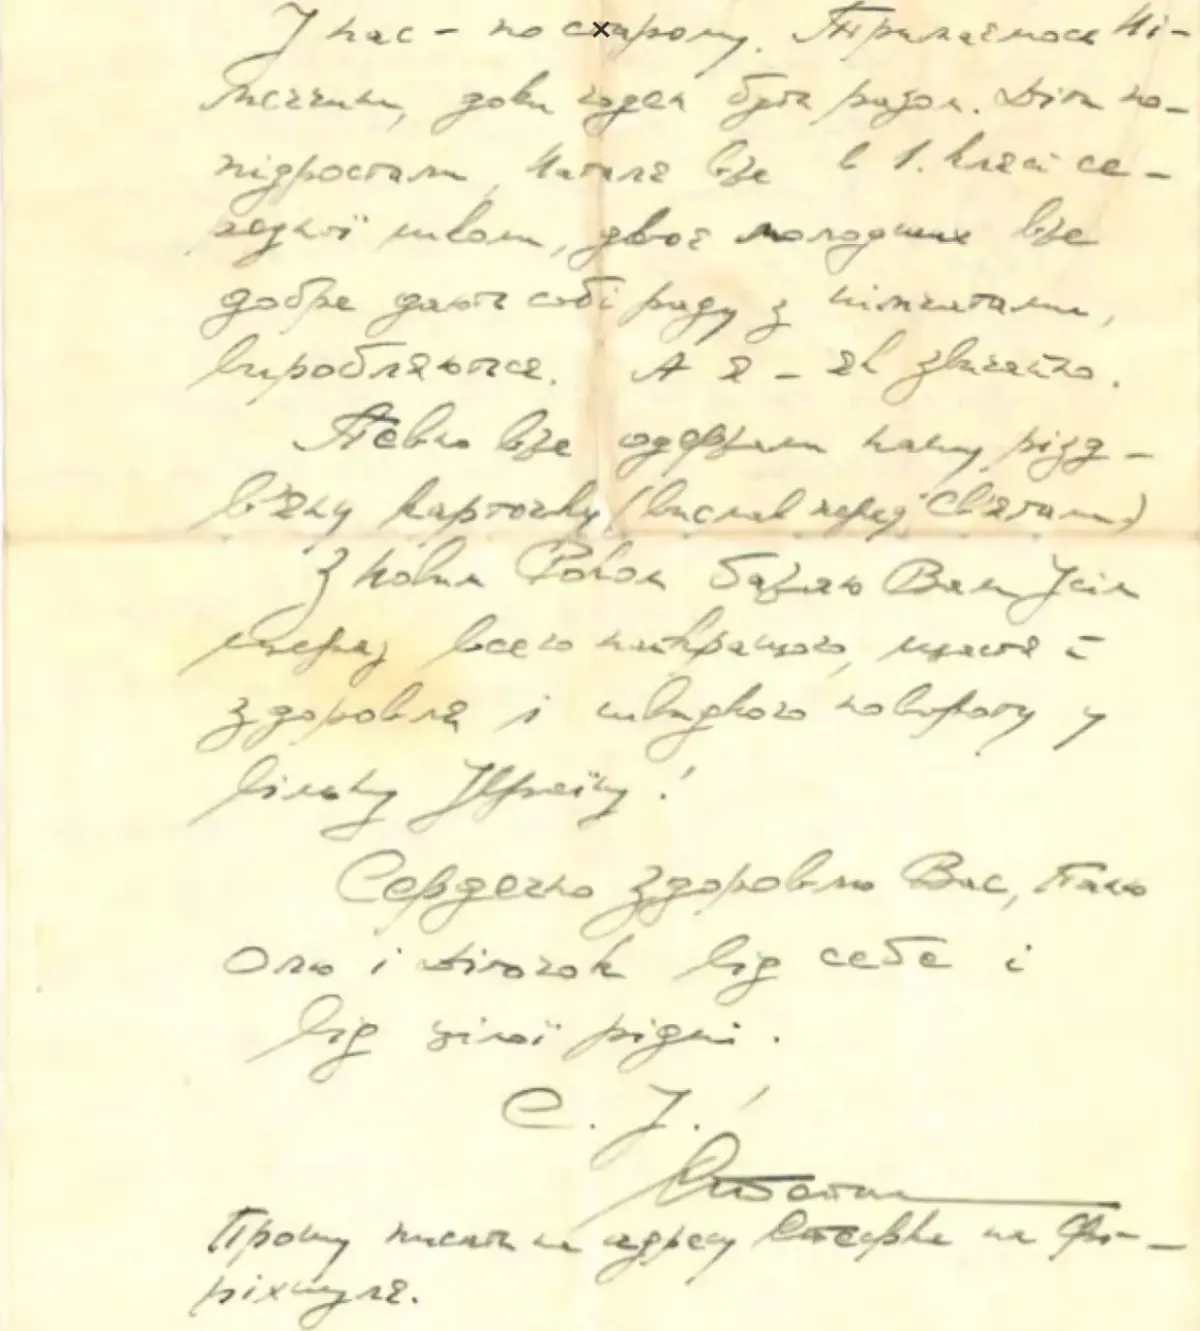 У нас – по старому. Тримаємося Ні-
меччини, доки годен бути разом. Діти по-
підростали, Наталя вже в 1. клясі се-
редньої школи, двоє молодших вже
добре дають собі раду з німчатами,
виробляються. А я – як звичайно.
Певно вже одержали нашу різд-
вяну карточку (вислав перед Святами)
З Новим Роком бажаю Вам Усім
щераз всего найкращого, щастя й
здоровля і швидкого повороту у
вільну Україну!
Сердечно здоровлю Вас, Паню
Олю і Діточок від себе і
від цілої рідні.
С. У.!
Прошу писати на адресу Стефка на